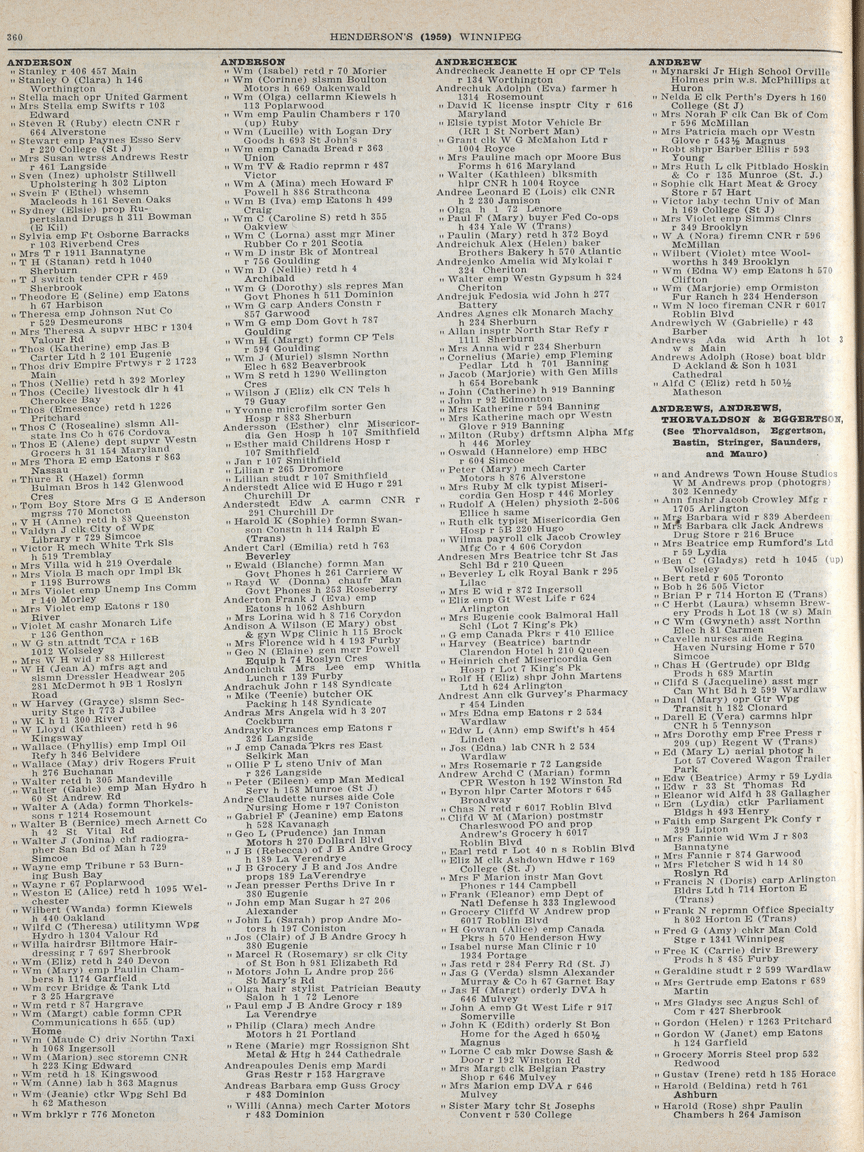 360
HENDERSON'S (1959) WINNIPEG
ANDERSON
" Stanley r 406 457 Main
" Stanley O (Clara) h 146
Worthington
" Stella mach opr United Garment
" Mrs Stella emp Swifts r 103
Edward
" Steven R (Ruby) electn CNR r
664 Alverstone
" Stewart emp Paynes Esso Serv
r 220 College (St J)
" Mrs Susan wtrss Andrews Restr
r 461 Langside
" Sven (Inez) upholstr Stillwell
Upholstering h 302 Lipton
" Svein F (Ethel) whsemn
Macleods h 161 Seven Oaks
" Sydney (Elsie) prop Ru-
pertsland Drugs h 311 Bowman
(E Kil)
" Sylvia emp Ft Osborne Barracks
r 103 Riverbend Cres
" Mrs T r 1911 Bannatyne
" T H (Stanan) retd h 1040
Sherburn
" T J switch tender CPR r 459
Sherbrook
" Theodore E (Seline) emp Eatons
h 67 Harbison
" Theresa emp Johnson Nut Co
r 529 Desmeurons
" Mrs Theresa A supvr HBC r 1304
Valour Rd
" Thos (Katherine) emp Jas B
Carter Ltd h 2 101 Eugenie
" Thos driv Empire Frtwys r 2 1723
Main
" Thos (Nellie) retd h 392 Morley
" Thos (Cecile) livestock dlr h 41
Cherokee Bay
" Thos (Emesence) retd h 1226
Pritchard
" Thos C (Rosealine) slsmn All-
state Ins Co h 676 Cordova
" Thos E (Alene) dept supvr Westn
Grocers h 31 154 Maryland
" Mrs Thora E emp Eatons r 863
Nassau
" Thure R (Hazel) formn
Bulman Bros h 142 Glenwood
Cres
" Tom Boy Store Mrs G E Anderson
mgrss 770 Moncton
" V H (Anne) retd h 88 Queenston
" Valdyn J clk City of Wpg
Library r 729 Simcoe
" Victor R mech White Trk Sls
h 519 Tremblay
" Mrs Villa wid h 219 Overdale
" Mrs Viola B mach opr Impl Bk
r 1198 Burrows
" Mrs Violet emp Unemp Ins Comm
r 140 Morley
" Mrs Violet emp Eatons r 180
River
" Violet M cashr Monarch Life
r 136 Genthon
" W G stn attndt TCA r 16B
1012 Wolseley
" Mrs W H wid r 88 Hillcrest
" W H (Jean A) mfrs agt and
slsmn Dressler Headwear 205
281 McDermot h 9B 1 Roslyn
Road
" W Harvey (Grayce) slsmn Sec-
urity Stge h 773 Jubilee
" W K h 11 300 River
" W Lloyd (Kathleen) retd h 96
Kingsway
" Wallace (Phyllis) emp Impl Oil
Refy h 346 Belvidere
" Wallace (May) driv Rogers Fruit
h 276 Buchanan
" Walter retd h 305 Mandeville
" Walter (Gabie) emp Man Hydro h
60 St Andrew Rd
" Walter A (Ada) formn Thorkels-
sons r 1214 Rosemount
" Walter B (Bernice) mech Arnett Co
h 42 St Vital Rd
" Walter J (Jonina) chf radiogra-
pher San Bd of Man h 729
Simcoe
" Wayne emp Tribune r 53 Burn-
ing Bush Bay
" Wayne r 67 Poplarwood
" Weston E (Alice) retd h 1095 Wel-
chester
" Wilbert (Wanda) formn Kiewels
h 440 Oakland
" Wilfd C (Theresa) utilitymn Wpg
Hydro h 1304 Valour Rd
" Willa hairdrsr Biltmore Hair-
dressing r 7 697 Sherbrook
" Wm (Eliz) retd h 240 Devon
" Wm (Mary) emp Paulin Cham-
bers h 1174 Garfield
" Wm rcvr Bridge & Tank Ltd
r 3 25 Hargrave
" Wm retd r 87 Hargrave
" Wm (Margt) cable formn CPR
Communications h 655 (up)
Home
" Wm (Maude C) driv Northn Taxi
h 1068 Ingersoll
" Wm (Marion) sec storemn CNR
h 223 King Edward
" Wm retd h 18 Kingswood
" Wm (Anne) lab h 363 Magnus
" Wm (Jeanie) ctkr Wpg Schl Bd
h 62 Matheson
" Wm brklyr r 776 Moncton
ANDERSON
" Wm (Isabel) retd r 70 Morier
" Wm (Corinne) slsmn Boulton
Motors h 669 Oakenwald
" Wm (Olga) cellarmn Kiewels h
113 Poplarwood
" Wm emp Paulin Chambers r 170
(up) Ruby
" Wm (Lucille) with Logan Dry
Goods h 693 St John's
" Wm emp Canada Bread r 363
Union
" Wm TV & Radio reprmn r 487
Victor
" Wm A (Mina) mech Howard F
Powell h 886 Strathcona
" Wm B (Iva) emp Eatons h 499
Craig
" Wm C (Caroline S) retd h 355
Oakview
" Wm C (Lorna) asst mgr Miner
Rubber Co r 201 Scotia
" Wm D instr Bk of Montreal
r 756 Goulding
" Wm D (Nellie) retd h 4
Archibald
" Wm G (Dorothy) sls repres Man
Govt Phones h 511 Dominion
" Wm G carp Anders Constn r
857 Garwood
" Wm G emp Dom Govt h 787
Goulding
" Wm H (Margt) formn CP Tels
r 594 Goulding
" Wm J (Muriel) slsmn Northn
Elec h 682 Beaverbrook
" Wm S retd h 1290 Wellington
Cres
" Wilson J (Eliz) clk CN Tels h
79 Guay
" Yvonne microfilm sorter Gen
Hosp r 883 Sherburn
Andersson (Esther) clnr Misericor-
dia Gen Hosp h 107 Smithfield
" Esther maid Childrens Hosp r
107 Smithfield
" Jan r 107 Smithfield
" Lilian r 265 Dromore
" Lillian studt r 107 Smithfield
Anderstedt Alice wid E Hugo r 291
Churchill Dr
Anderstedt Edw A carmn CNR r
291 Churchill Dr
" Harold K (Sophie) formn Swan-
son Constn h 114 Ralph E
(Trans)
Andert Carl (Emilia) retd h 763
Beverley
" Ewald (Blanche) formn Man
Govt Phones h 261 Carriere W
" Rayd W (Donna) chaufr Man
Govt Phones h 253 Roseberry
Anderton Frank J (Eva) emp
Eatons h 1062 Ashburn
" Mrs Lorina wid h 8 716 Corydon
Andison A Wilson (E Mary) obst
& gyn Wpg Clinic h 115 Brock
" Mrs Florence wid h 4 193 Furby
" Geo N (Elaine) gen mgr Powell
Equip h 74 Roslyn Cres
Andonichuk Mrs Lee emp Whitla
Lunch r 139 Furby
Andrachuk John r 148 Syndicate
" Mike (Teenie) butcher OK
Packing h 148 Syndicate
Andras Mrs Angela wid h 3 207
Cockburn
Andrayko Frances emp Eatons r
326 Langside
" J emp Canada Pkrs res East
Selkirk Man
" Ollie P L steno Univ of Man
r 326 Langside
" Peter (Eileen) emp Man Medical
Serv h 158 Munroe (St J)
Andre Claudette nurses aide Cole
Nursing Home r 197 Coniston
" Gabriel F (Jeanine) emp Eatons
h 528 Kavanagh
" Geo L (Prudence) jan Inman
Motors h 270 Dollard Blvd
" J B (Rebecca) of J B Andre Grocy
h 189 La Verendrye
" J B Grocery J B and Jos Andre
props 189 LaVerendrye
" Jean presser Perths Drive In r
380 Eugenie
" John emp Man Sugar h 27 206
Alexander
" John L (Sarah) prop Andre Mo-
tors h 197 Coniston
" Jos (Clair) of J B Andre Grocy h
380 Eugenie
" Marcel R (Rosemary) sr clk City
of St Bon h 981 Elizabeth Rd
" Motors John L Andre prop 256
St Mary's Rd
" Olga hair stylist Patrician Beauty
Salon h 1 72 Lenore
" Paul emp J B Andre Grocy r 189
La Verendrye
" Philip (Clara) mech Andre
Motors h 21 Portland
" Rene (Marie) mgr Rossignon Sht
Metal & Htg h 244 Cathedrale
Andreapoules Denis emp Mardi
Gras Restr r 153 Hargrave
Andreas Barbara emp Guss Grocy
r 483 Dominion
" Willi (Anna) mech Carter Motors
r 483 Dominion
ANDRECHECK
Andrecheck Jeanette H opr CP Tels
r 134 Worthington
Andrechuk Adolph (Eva) farmer h
1314 Rosemount
" David K license insptr City r 616
Maryland
" Elsie typist Motor Vehicle Br
(RR 1 St Norbert Man)
" Grant clk W G McMahon Ltd r
1004 Royce
" Mrs Pauline mach opr Moore Bus
Forms h 616 Maryland
" Walter (Kathleen) blksmith
hlpr CNR h 1004 Royce
Andree Leonard E (Lois) clk CNR
h 2 230 Jamison
" Olga h 1 72 Lenore
" Paul F (Mary) buyer Fed Co-ops
h 434 Yale W (Trans)
" Paulin (Mary) retd h 372 Boyd
Andreichuk Alex (Helen) baker
Brothers Bakery h 570 Atlantic
Andrejenko Amelia wid Mykolai r
324 Cheriton
" Walter emp Westn Gypsum h 324
Cheriton
Andrejuk Fedosia wid John h 277
Battery
Andres Agnes clk Monarch Machy
h 234 Sherburn
" Allan insptr North Star Refy r
1111 Sherburn
" Mrs Anna wid r 234 Sherburn
" Cornelius (Marie) emp Fleming
Pedlar Ltd h 701 Banning
" Jacob (Marjorie) with Gen Mills
h 654 Borebank
" John (Catherine) h 919 Banning
" John r 92 Edmonton
" Mrs Katherine r 594 Banning
" Mrs Katherine mach opr Westn
Glove r 919 Banning
" Milton (Ruby) drftsmn Alpha Mfg
h 446 Morley
" Oswald (Hannelore) emp HBC
r 604 Simcoe
" Peter (Mary) mech Carter
Motors h 876 Alverstone
" Mrs Ruby M clk typist Miseri-
cordia Gen Hosp r 446 Morley
" Rudolf A (Helen) physioth 2-506
Ellice h same
" Ruth clk typist Misericordia Gen
Hosp r 5B 220 Hugo
" Wilma payroll clk Jacob Crowley
Mfg Co r 4 606 Corydon
Andresen Mrs Beatrice tchr St Jas
Schl Bd r 210 Queen
" Beverley L clk Royal Bank r 295
Lilac
" Mrs E wid r 872 Ingersoll
" Eliz emp Gt West Life r 624
Arlington
" Mrs Eugenie cook Balmoral Hall
Schl (Lot 7 King's Pk)
" G emp Canada Pkrs r 410 Ellice
" Harvey (Beatrice) bartndr
Clarendon Hotel h 210 Queen
" Heinrich chef Misericordia Gen
Hosp r Lot 7 King's Pk
" Rolf H (Eliz) shpr John Martens
Ltd h 624 Arlington
Andrest Ann clk Gurvey's Pharmacy
r 454 Linden
" Mrs Edna emp Eatons r 2 534
Wardlaw
" Edw L (Ann) emp Swift's h 454
Linden
" Jos (Edna) lab CNR h 2 534
Wardlaw
" Mrs Rosemarie r 72 Langside
Andrew Archd C (Marian) formn
CPR Weston h 192 Winston Rd
" Byron hlpr Carter Motors r 645
Broadway
" Chas N retd r 6017 Roblin Blvd
" Clifd W M (Marion) postmstr
Charleswood PO and prop
Andrew's Grocery h 6017
Roblin Blvd
" Earl retd r Lot 40 n s Roblin Blvd
" Eliz M clk Ashdown Hdwe r 169
College (St. J)
" Mrs F Marion instr Man Govt
Phones r 144 Campbell
" Frank (Eleanor) emp Dept of
Natl Defense h 333 Inglewood
" Grocery Cliffd W Andrew prop
6017 Roblin Blvd
" H Gowan (Alice) emp Canada
Pkrs h 570 Henderson Hwy
" Isabel nurse Man Clinic r 10
1934 Portage
" Jas retd r 284 Ferry Rd (St. J)
" Jas G (Verda) slsmn Alexander
Murray & Co h 67 Garnet Bay
" Jas H (Margt) orderly DVA h
646 Mulvey
" John A emp Gt West Life r 917
Somerville
" John K (Edith) orderly St Bon
Home for the Aged h 650½
Magnus
" Lorne C cab mkr Dowse Sash &
Door r 192 Winston Rd
" Mrs Margt clk Belgian Pastry
Shop r 646 Mulvey
" Mrs Marion emp DVA r 646
Mulvey
" Sister Mary tchr St Josephs
Convent r 530 College
ANDREW
" Mynarski Jr High School Orville
Holmes prin w.s. McPhillips at
Huron
" Nelda E clk Perth's Dyers h 160
College (St J)
" Mrs Norah F clk Can Bk of Com
r 596 McMillan
" Mrs Patricia mach opr Westn
Glove r 543½ Magnus
" Robt shpr Barber Ellis r 593
Young
" Mrs Ruth L clk Pitblado Hoskin
& Co r 135 Munroe (St. J.)
" Sophie clk Hart Meat & Grocy
Store r 57 Hart
" Victor laby techn Univ of Man
h 169 College (St J)
" Mrs Violet emp Simms Clnrs
r 349 Brooklyn
" W A (Nora) firemn CNR r 596
McMillan
" Wilbert (Violet) mtce Wool-
worths h 349 Brooklyn
" Wm (Edna W) emp Eatons h 570
Clifton
" Wm (Marjorie) emp Ormiston
Fur Ranch h 234 Henderson
" Wm N loco fireman CNR r 6017
Roblin Blvd
Andrewlych W (Gabrielle) r 43
Barber
Andrews Ada wid Arth h lot 3
w s Main
Andrews Adolph (Rose) boat bldr
D Ackland & Son h 1031
Cathedral
" Alfd C (Eliz) retd h 50½
Matheson
ANDREWS, ANDREWS,
THORVALDSON & EGGERTSON,
(See Thorvaldson, Eggertson,
Bastin, Stringer, Saunders,
and Mauro)
" and Andrews Town House Studios
W M Andrews prop (photogrs)
302 Kennedy
" Ann fnshr Jacob Crowley Mfg r
1705 Arlington
" Mrs Barbara wid r 839 Aberdeen
" Mrs Barbara clk Jack Andrews
Drug Store r 216 Bruce
" Mrs Beatrice emp Rumford's Ltd
r 59 Lydia
" Ben C (Gladys) retd h 1045 (up)
Wolseley
" Bert retd r 605 Toronto
" Bob h 26 505 Victor
" Brian P r 714 Horton E (Trans)
" C Herbt (Laura) whsemn Brew-
ery Prods h Lot 18 (w s) Main
" C Wm (Gwyneth) asst Northn
Elec h 81 Carmen
" Cavelle nurses aide Regina
Haven Nursing Home r 570
Simcoe
" Chas H (Gertrude) opr Bldg
Prods h 689 Martin
" Clifd S (Jacqueline) asst mgr
Can Wht Bd h 2 599 Wardlaw
" Danl (Mary) opr Gtr Wpg
Transit h 182 Clonard
" Darell E (Vera) carmns hlpr
CNR h 5 Tennyson
" Mrs Dorothy emp Free Press r
209 (up) Regent W (Trans)
" Ed (Mary L) aerial photog h
Lot 57 Covered Wagon Trailer
Park
" Edw (Beatrice) Army r 59 Lydia
" Edw r 33 St Thomas Rd
" Eleanor wid Alfd h 38 Gallagher
" Ern (Lydia) ctkr Parliament
Bldgs h 493 Henry
" Faith emp Sargent Pk Confy r
399 Lipton
" Mrs Fannie wid Wm J r 803
Bannatyne
" Mrs Fannie r 874 Garwood
" Mrs Fletcher S wid h 14 80
Roslyn Rd
" Francis N (Doris) carp Arlington
Bldrs Ltd h 714 Horton E
(Trans)
" Frank N reprmn Office Specialty
h 802 Horton E (Trans)
" Fred G (Amy) chkr Man Cold
Stge r 1341 Winnipeg
" Free K (Carrie) driv Brewery
Prods h 8 485 Furby
" Geraldine studt r 2 599 Wardlaw
" Mrs Gertrude emp Eatons r 689
Martin
" Mrs Gladys sec Angus Schl of
Com r 427 Sherbrook
" Gordon (Helen) r 1263 Pritchard
" Gordon W (Janet) emp Eatons
h 124 Garfield
" Grocery Morris Steel prop 532
Redwood
" Gustav (Irene) retd h 185 Horace
" Harold (Beldina) retd h 761
Ashburn
" Harold (Rose) shpr Paulin
Chambers h 264 Jamison